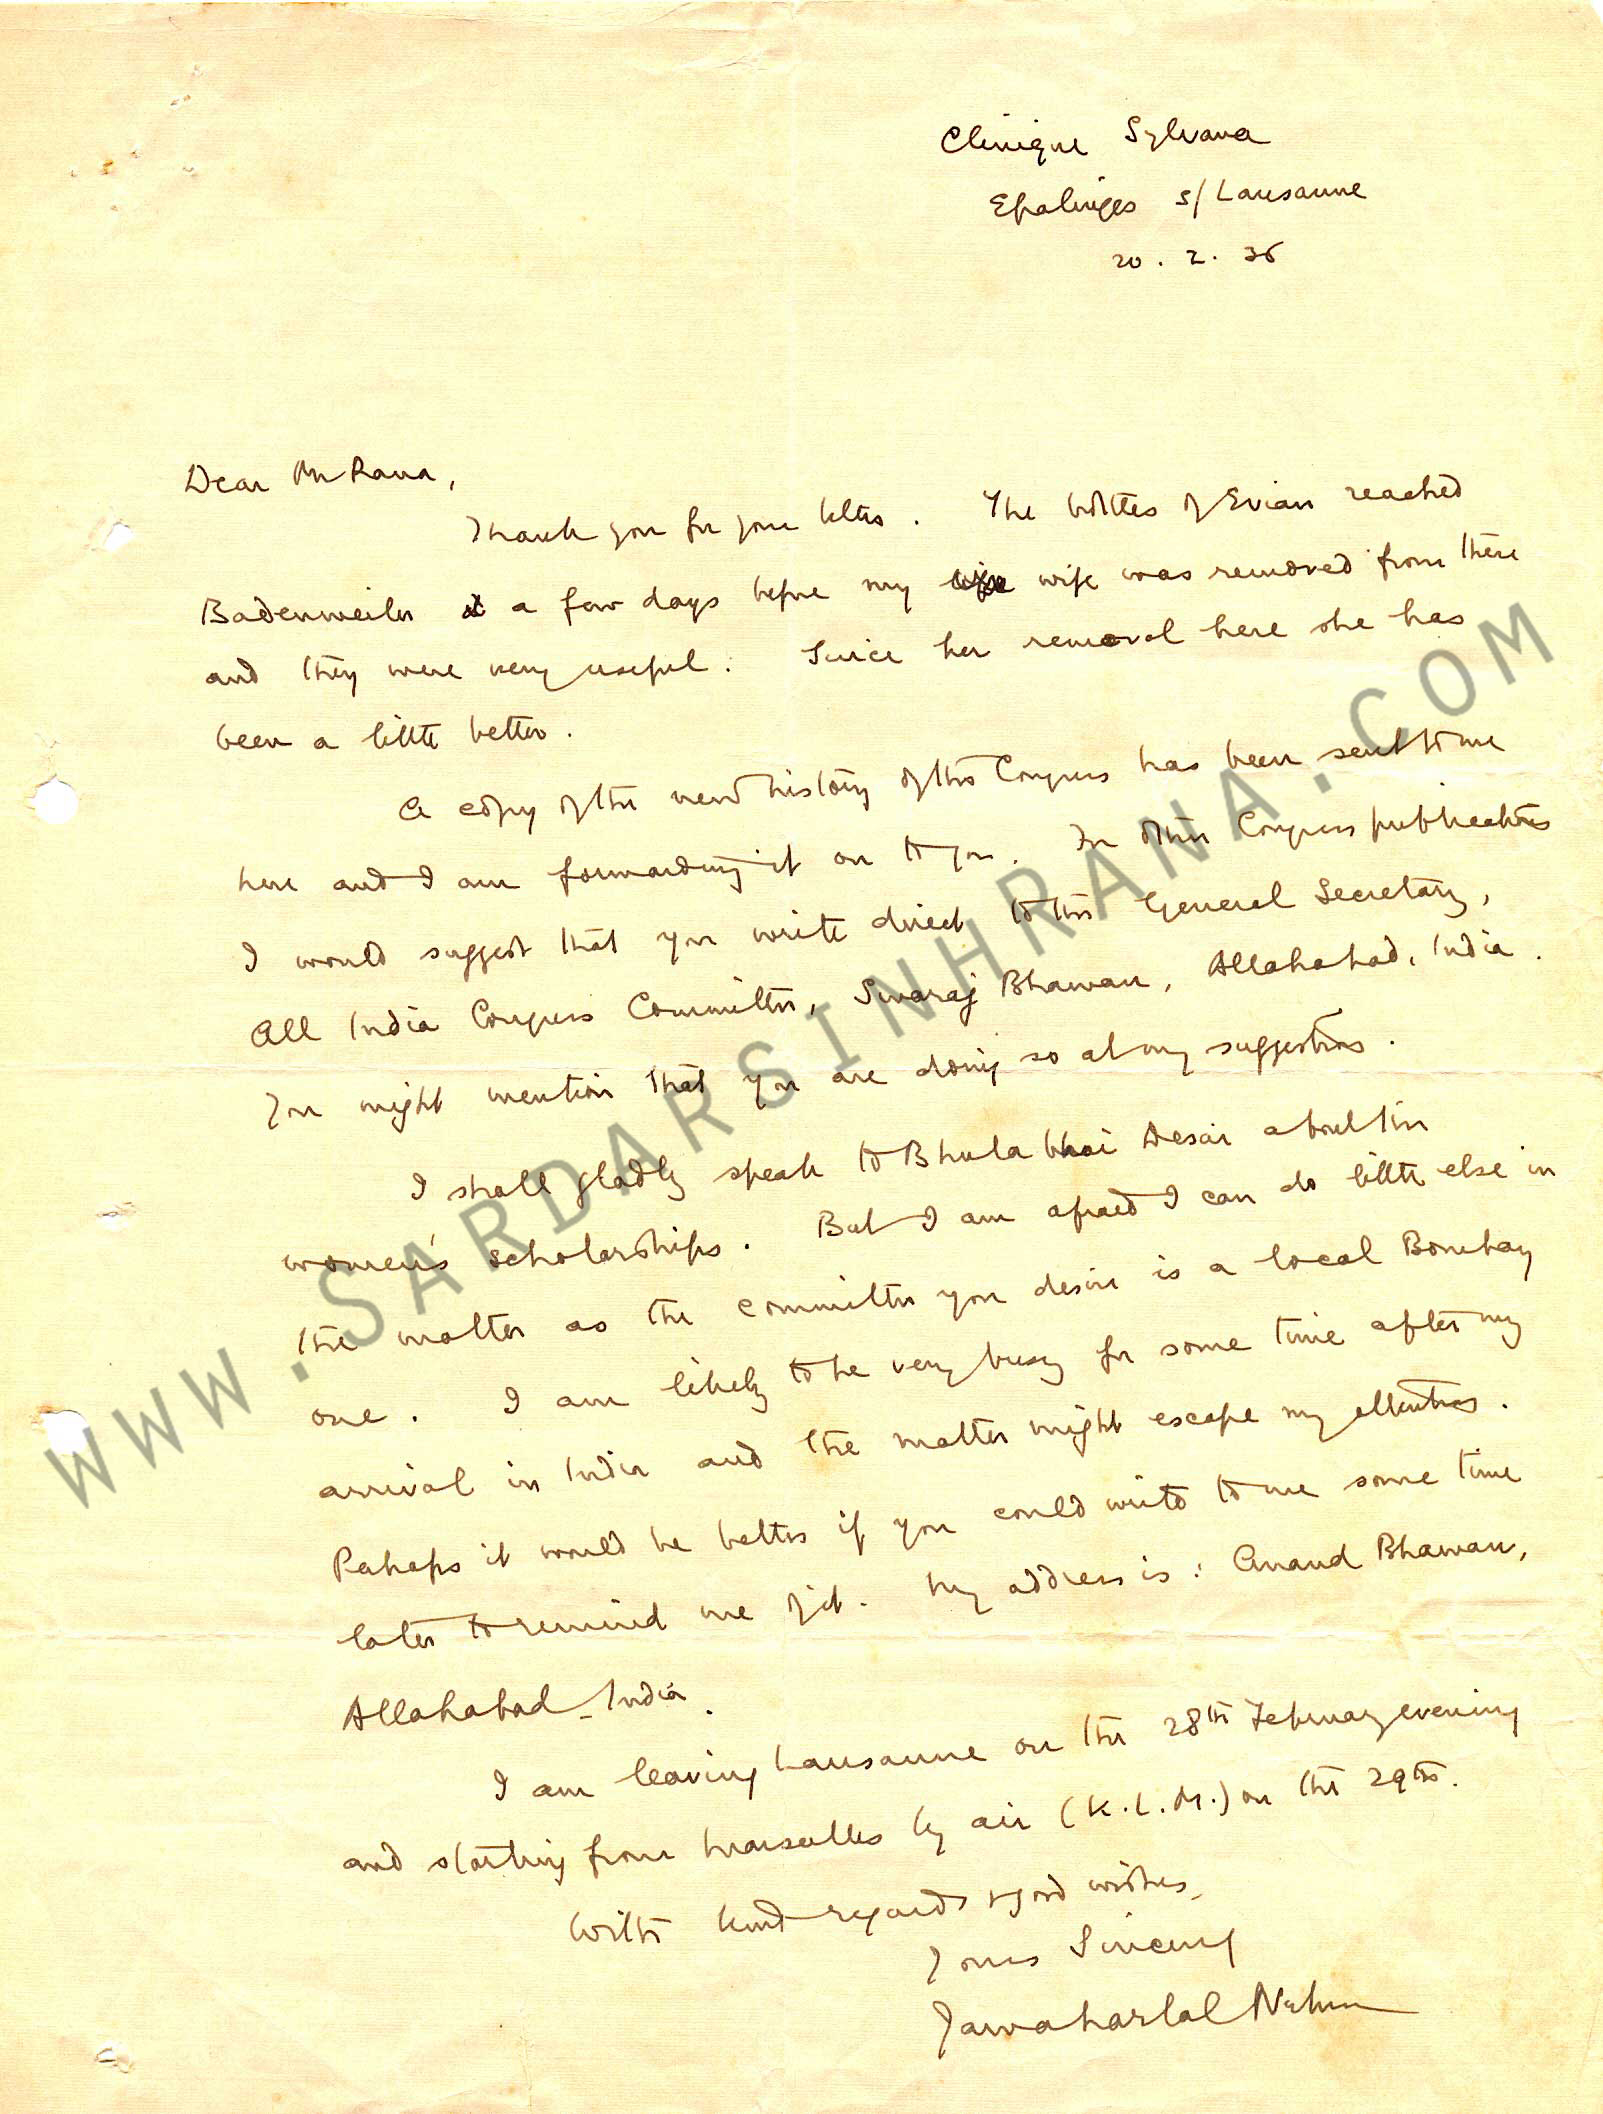 Clinique Sylvana
Epalinges s/ Lausanne
20 . 2 . 36
Dear Mr Rana,
Thank you for your letter. The bottles of Evian reached
Badenweiler a few days before my wife was removed from there
and they were very useful. Since her removal here she has
been a little better.
A copy of the new history of the Congress has been sent to me
here and I am forwarding it on to you. For other Congress publications
I would suggest that you write direct to the General Secretary,
All India Congress Committee, Swaraj Bhawan, Allahabad, India.
You might mention that you are doing so at my suggestion.
I shall gladly speak to Bhulabhai Desai about the
women's scholarships. But I am afraid I can do little else in
the matter as the committee you desire is a local Bombay
one. I am likely to be very busy for some time after my
arrival in India and the matter might escape my attention.
Perhaps it would be better if you could write to me some time
later to remind me of it. My address is: Anand Bhawan,
Allahabad - India.
I am leaving Lausanne on the 28th February evening
and starting from Marseilles by air (K.L.M.) on the 29th.
With kind regards & good wishes,
Yours Sincerely
Jawaharlal Nehru
WWW.SARDARSINHRANA.COM